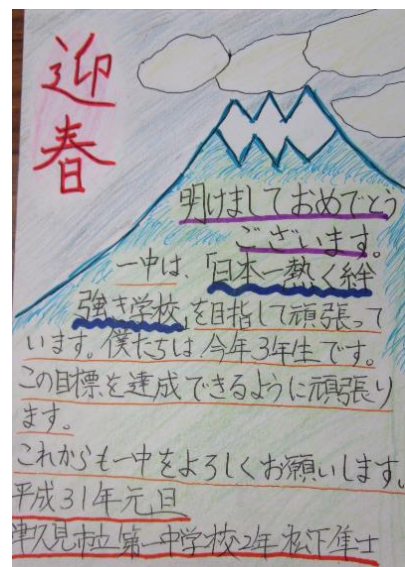 迎春
明けましておめでとう
ございます。
一中は、「日本一熱く絆
強き学校」を目指して頑張って
います。僕たちは今年3年生です。
この目標を達成できるように頑張り
ます。
これからも一中をよろしくお願いします。
平成31年元日
津久見市立第一中学校2年 松下隼士